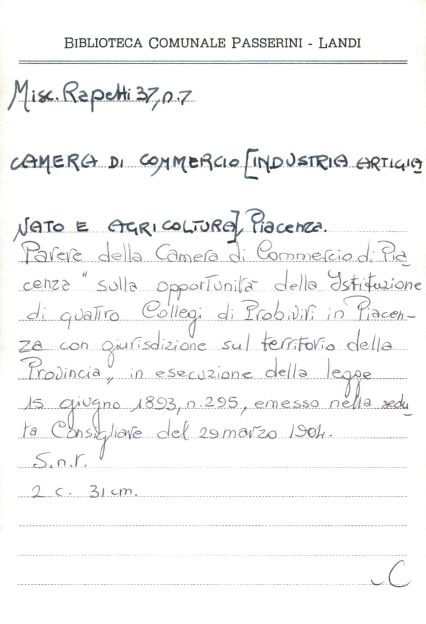 BIBLIOTECA COMUNALE PASSERINI - LANDI
Misc. Rapetti 37, n. 7
CAMERA DI COMMERCIO [INDUSTRIA ARTIGIA
NATO E AGRICOLTURA], Piacenza.
Parere della Camera di Commercio di Pia
cenza " sulla opportunità della Istituzione
di quattro Collegi di Probiviri in Piacen-
za con giurisdizione sul territorio della
Provincia", in esecuzione della legge
15 giugno 1893, n. 295, emesso nella sedu
ta Consigliare del 29 marzo 1904.
S.n.t.
2 c. 31 cm.
C